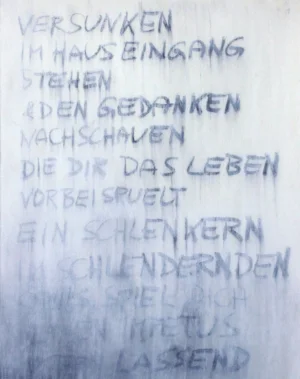 VERSUNKEN
IM HAUSEINGANG
STEHEN
&DEN GEDANKEN
NACHSCHAUEN
DIE DIR DAS LEBEN
VORBEISPUELT
EIN SCHLENKERN
SCHLENDERNDEN
SPIEL DICH
LASSEND